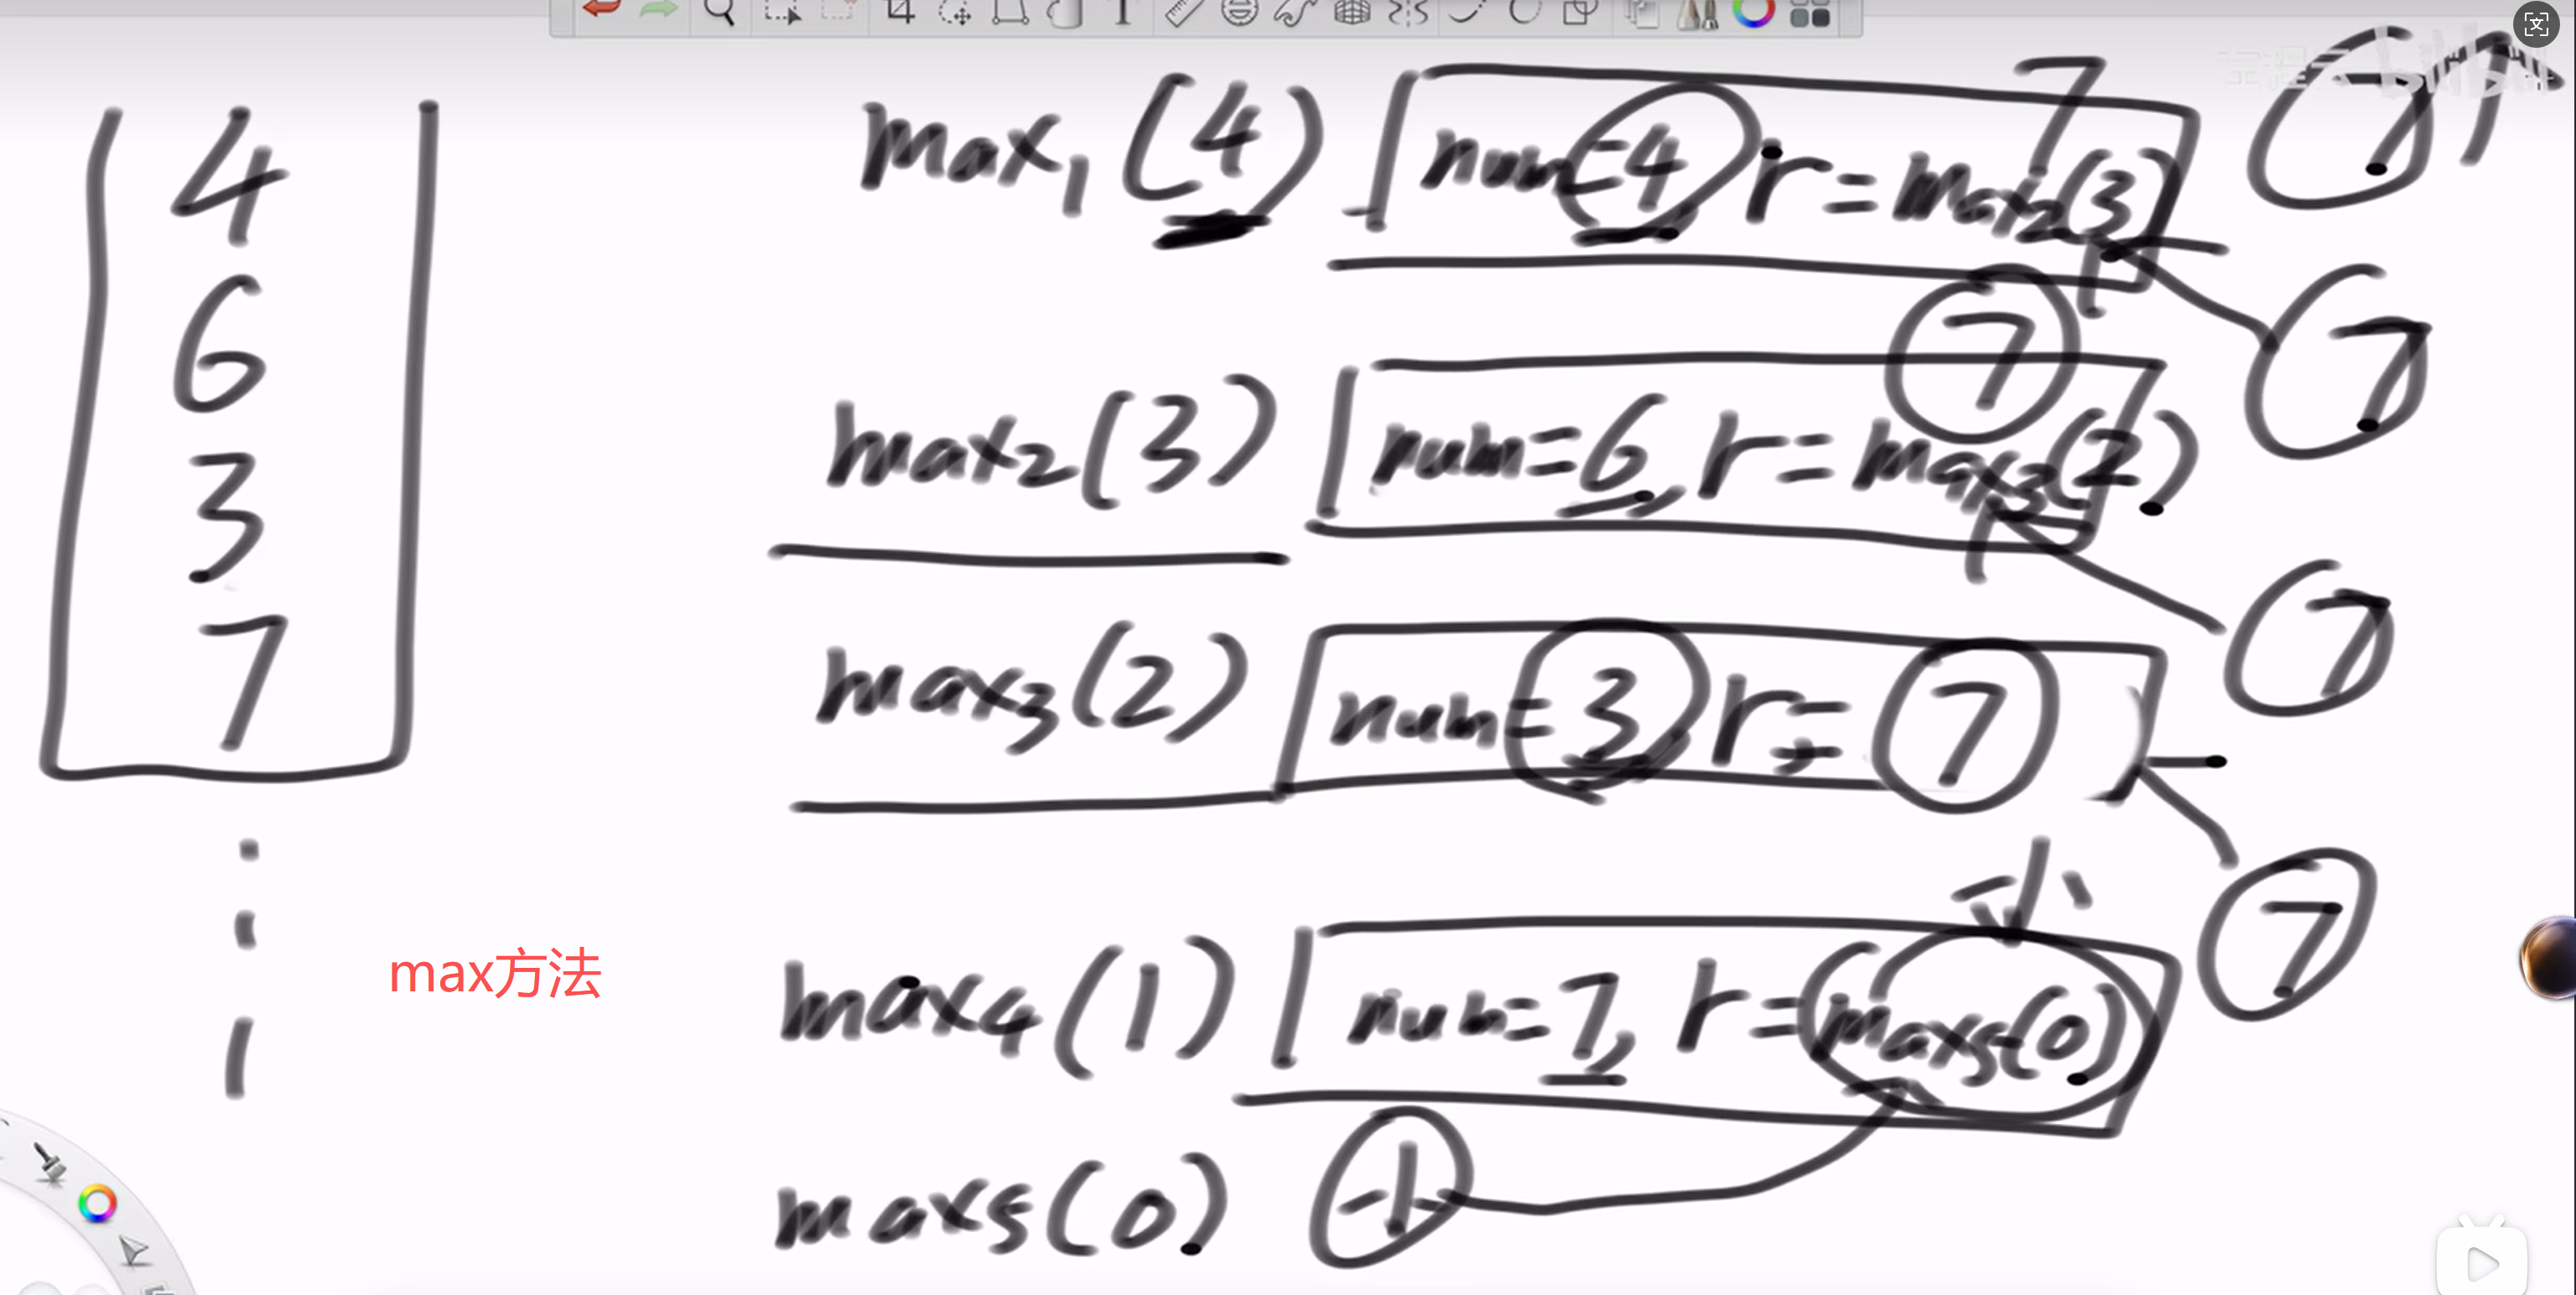 4
6
3
7
1
max方法
max1(4) num=4 r=max2(3) 7 7
max2(3) num=6, r=max3(2) 7 7
max3(2) num=3, r=7 7
max4(1) num=7, r=max5(0) -1 7
max5(0) -1
bilibili